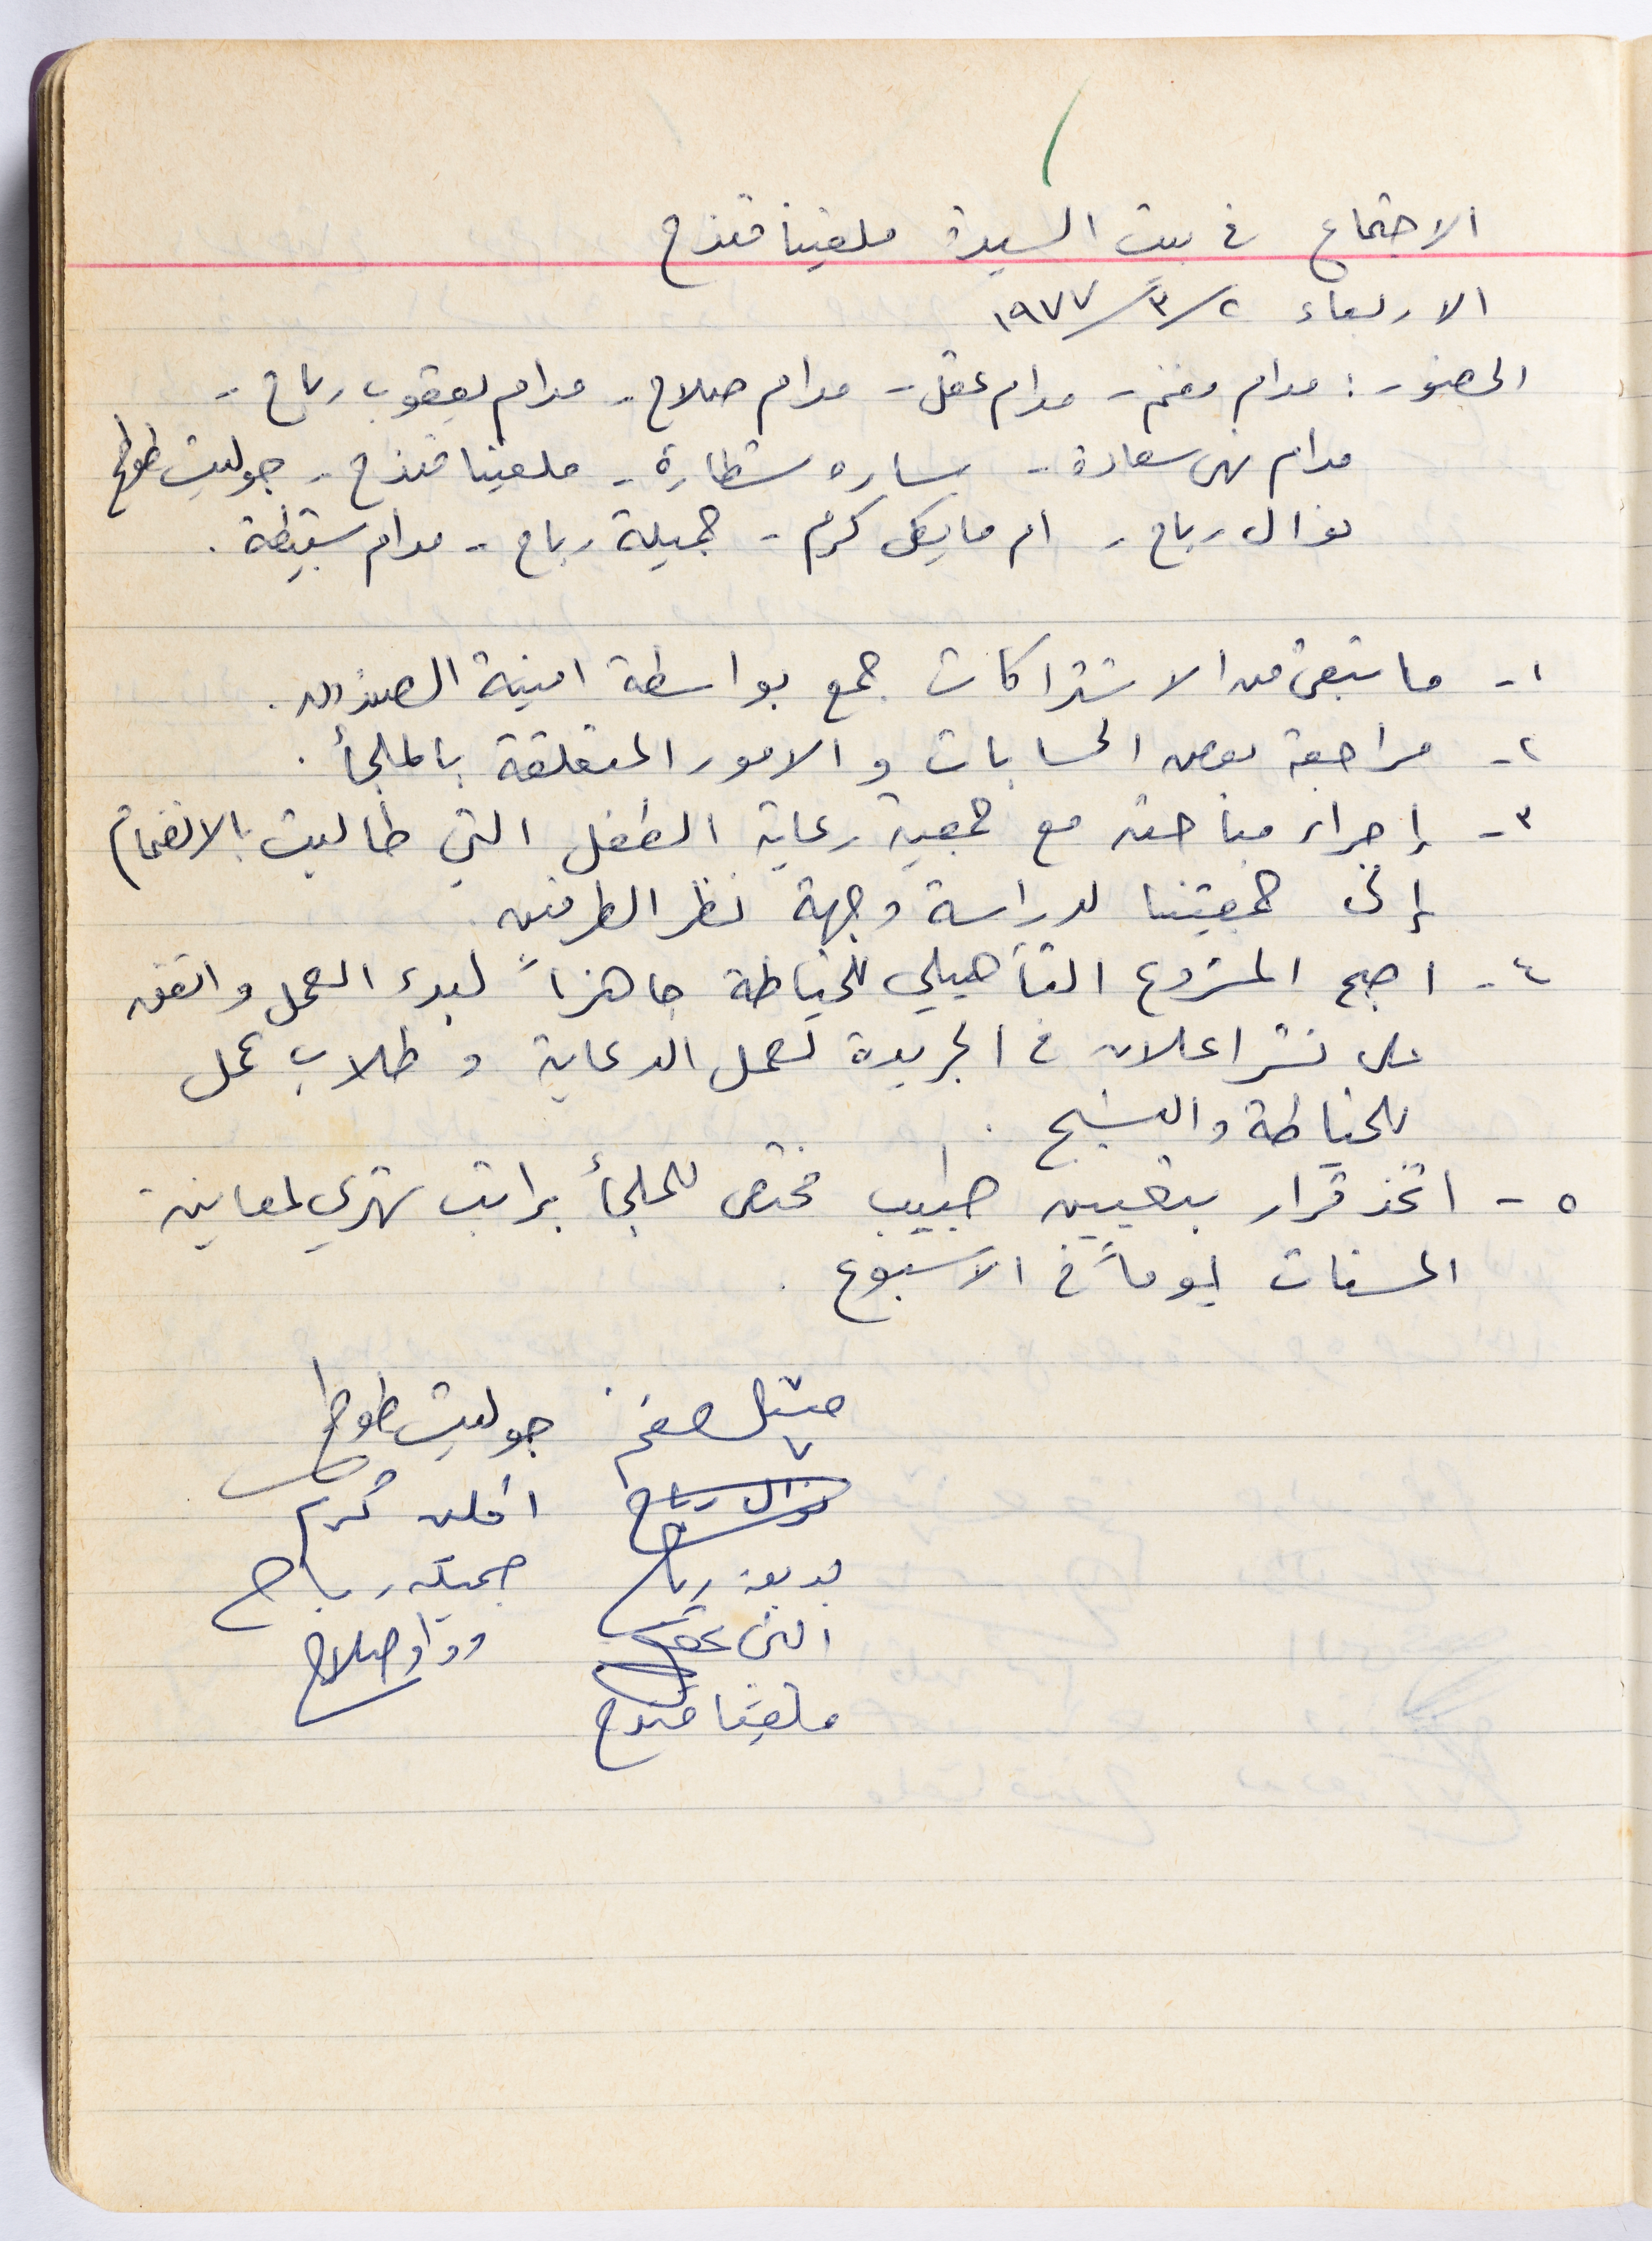 الاجتماع في بيت السيدة ملفينا قندح
الاربعاء ٢/٣/١٩٧٧
الحضور: مدام مغنم - مدام عقل - مدام صلاح - مدام يعقوب رباح -
مدام نهى سعادة - ساره شطارة - ملفينا قندح - جوليت طوطح
نوال رباح - ام مايكل كرم - جميلة رباح - مدام سقيطة.
١- ما تبقى من الاشتراكات جمع بواسطة امينة الصندوق.
٢- مراجعة بعض الحسابات و الامور المتعلقة بالملجأ.
٣- إجراء مباحثه مع جمعية رعاية الطفل التي طالبت بالانضمام
إلى جمعيتنا لدراسة وجهة نظر الطرفين
٤- اصبح المشروع التأهيلي للخياطة جاهزاً لبدء العمل واتفق
على نشر اعلان في الجريدة لعمل الدعاية و طلاب عمل
للخياطة والنسيج.
٥- اتخذ قرار بتعيين طبيب مختص للملجأ براتب شهري لمعاينة
المسنات يوماً في الاسبوع.
مغنم جوليت طوطح
نوال رباح كرم
بديعة رباح جميله رباح
عقل وداد صلاح
ملفينا قندح